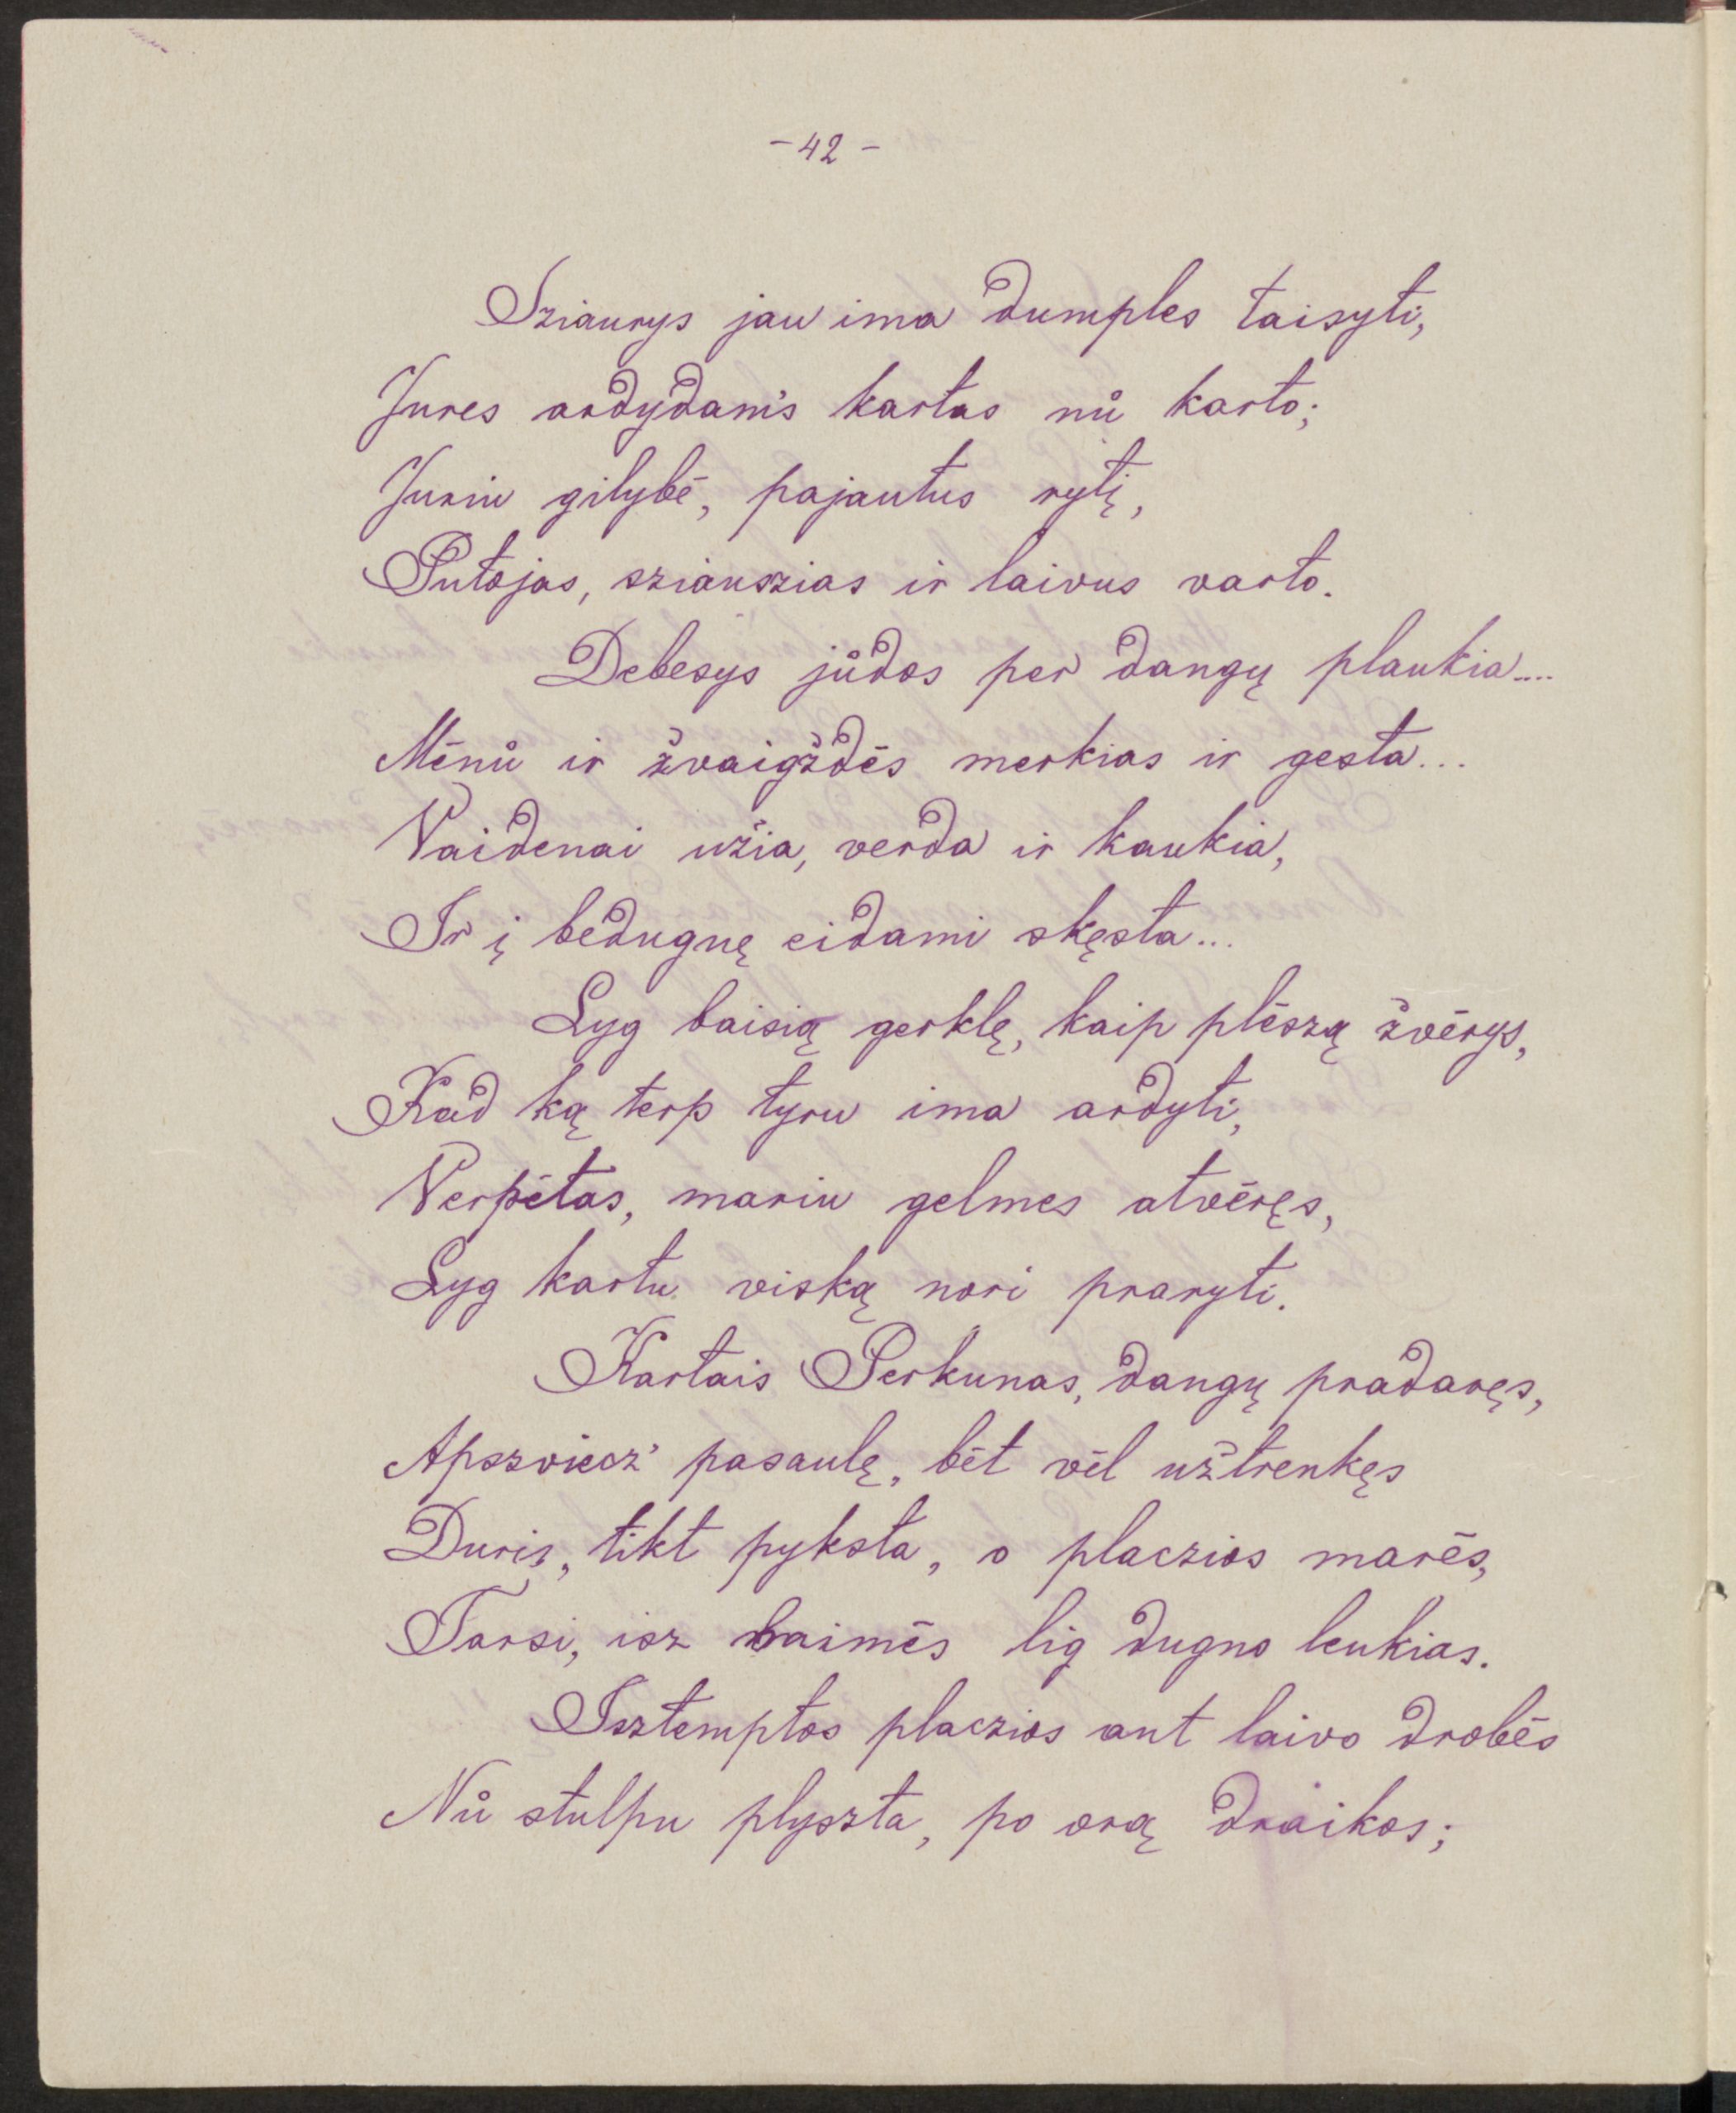 - 42 -
Sziaurys jau ima dumples taisyti,
Jures ardydam's kartas nů karto;
Juriu gilybė, pajautus rytį,
Putojas, sziauszias ir laivus varto.
Debesys jůdos per dangų plaukia....
Mėnů ir žvaigždės merkias ir gęsta...
Vaidenai užia, verda ir kaukia,
Ir į bedugnę eidami skęsta...
Lyg baisią gerklę, kaip plėszą žvėrys,
Kad ką terp tyru ima ardyti,
Verpėtas, mariu gelmes atvėręs,
Lyg kartu viską nori praryti.
Kartais Perkunas, dangų pradaręs,
Apszviecz' pasaulę, bėt vėl užtrenkęs
Duris, tikt pyksta, o placzios marės,
Tarsi, isz baimės lig dugno lenkias.
Isztemptos placzios ant laivo drobės
Nů stulpu plyszta, po orą draikos;